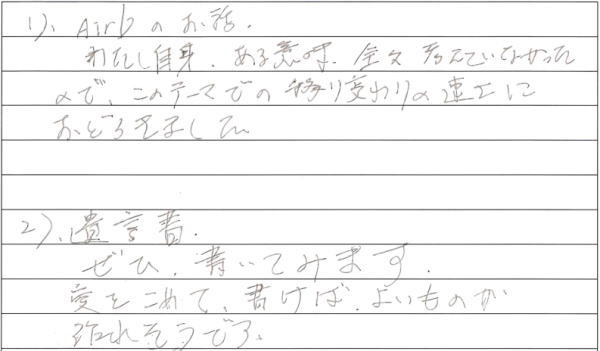 1)、Airbのお話.
わたし自身、ある意味、全く考えていなかった
ので、このテーマでの移り変わりの速さに
おどろきました。
2)、遺言書.
ぜひ、書いてみます.
愛をこめて、書けば、よいものが
作れそうです。